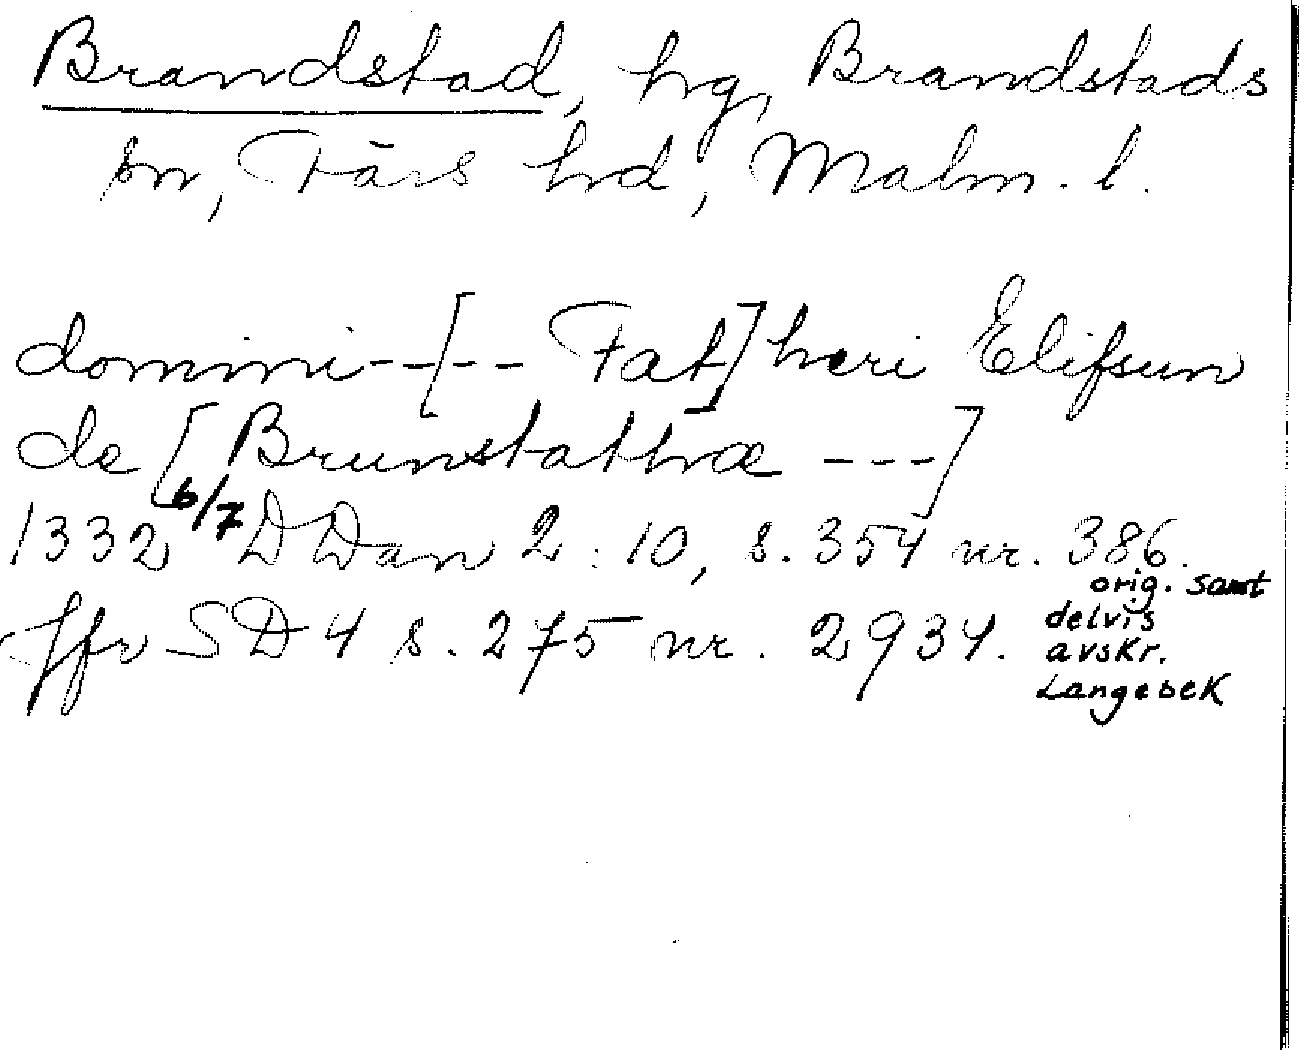 Brandstad, hg, Brandstads
sn, Färs hd, Malm. l.
domini--[-- Fat]heri Elifsun
de [Brunstathæ ---]
1332 6/7 DDan 2:10, s. 354 nr. 386.
orig. samt
Jfr SD 4 s. 275 nr. 2934.
delvis
avskr.
Langebek